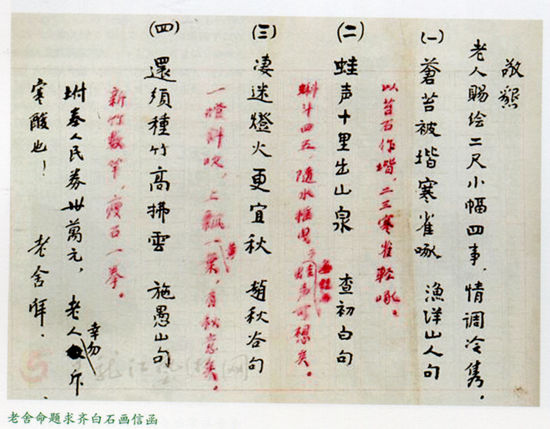 敬懇
老人賜绘二尺小幅四事，情调冷隽。
(一) 蒼苔被堦寒雀啄 漁洋山人句
以苔石作堦，二三寒雀輕啄。
(二) 蛙声十里出山泉 查初白句
蝌斗四五，隨水摇曳；無蛙而蛙声可想矣。
(三) 凄迷燈火更宜秋 趙秋谷句
一燈斜吹，上飘一黄葉，有秋意矣。
(四) 還須種竹高拂雲 施愚山句
新竹数竿，瘦石一拳。
坿奉人民券卅萬元，老人幸勿斥
寒酸也！ 老舍拜.
老舍命题求齐白石画信函